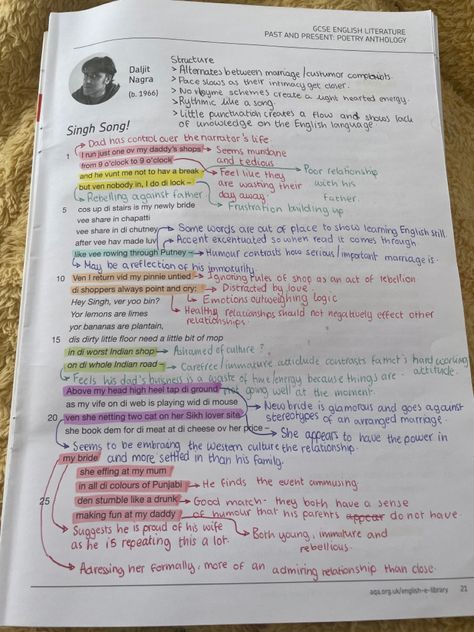 GCSE ENGLISH LITERATURE
PAST AND PRESENT: POETRY ANTHOLOGY
Daljit
Nagra
(b. 1966)
Structure
> Alternates between marriage/custumor complaints.
> Pace slows as their intimacy get closer.
> No rhyme schemes create a light hearted energy.
> Rythmic like a song.
> Little punctuation creates a flow and shows lack
of knowledge on the English language
Singh Song!
Dad has control over the narrator's life
1 I run just one ov my daddy's shops → Seems mundane
and tedious
from 9 o'clock to 9 o'clock
and he vunt me not to hav a break → Feel like they
are wasting their
day away.
Poor relationship
with his
father.
but ven nobody in, I do di lock –
Rebelling against father
Frustration building up
5 cos up di stairs is my newly bride
vee share in chapatti
vee share in di chutney → Some words are out of place to show learning English still.
after vee hav made luv → Accent excentuated so when read it comes through.
like vee rowing through Putney → Humour contrasts how serious/important marriage is.
May be a reflection of his immaturity.
10 Ven I return vid my pinnie untied → Ignoring rules of shop as an act of rebellion
di shoppers always point and cry: → Distracted by love.
Emotions outweighing logic
Hey Singh, ver yoo bin?
Healthy relationships should not negatively effect other
relationships.
Yor lemons are limes
yor bananas are plantain,
15 dis dirty little floor need a little bit of mop
in di worst Indian shop → Ashamed of culture?
on di whole Indian road – → Carefree/immature attidude contrasts father's hard working
attitude.
Feels his dad's business is a waste of time/energy because things are
not going well at the moment.
Above my head high heel tap di ground
as my vife on di web is playing wid di mouse
New bride is glamorous and goes against
stereotypes of an arranged marriage
20 ven she netting two cat on her Sikh lover site
she book dem for di meat at di cheese ov her price – → She appears to have the power in
the relationship.
Seems to be embracing the western culture
and more settled in than his family.
my bride
she effing at my mum
in all di colours of Punjabi → He finds the event ammusing.
den stumble like a drunk → Good match - they both have a sense
of humour that his parents appear do not have.
25 making fun at my daddy
Suggests he is proud of his wife
as he is repeating this a lot.
Both young, immature and
rebellious.
Adressing her formally, more of an admiring relationship than close.
aqa.org.uk/english-e-library
21